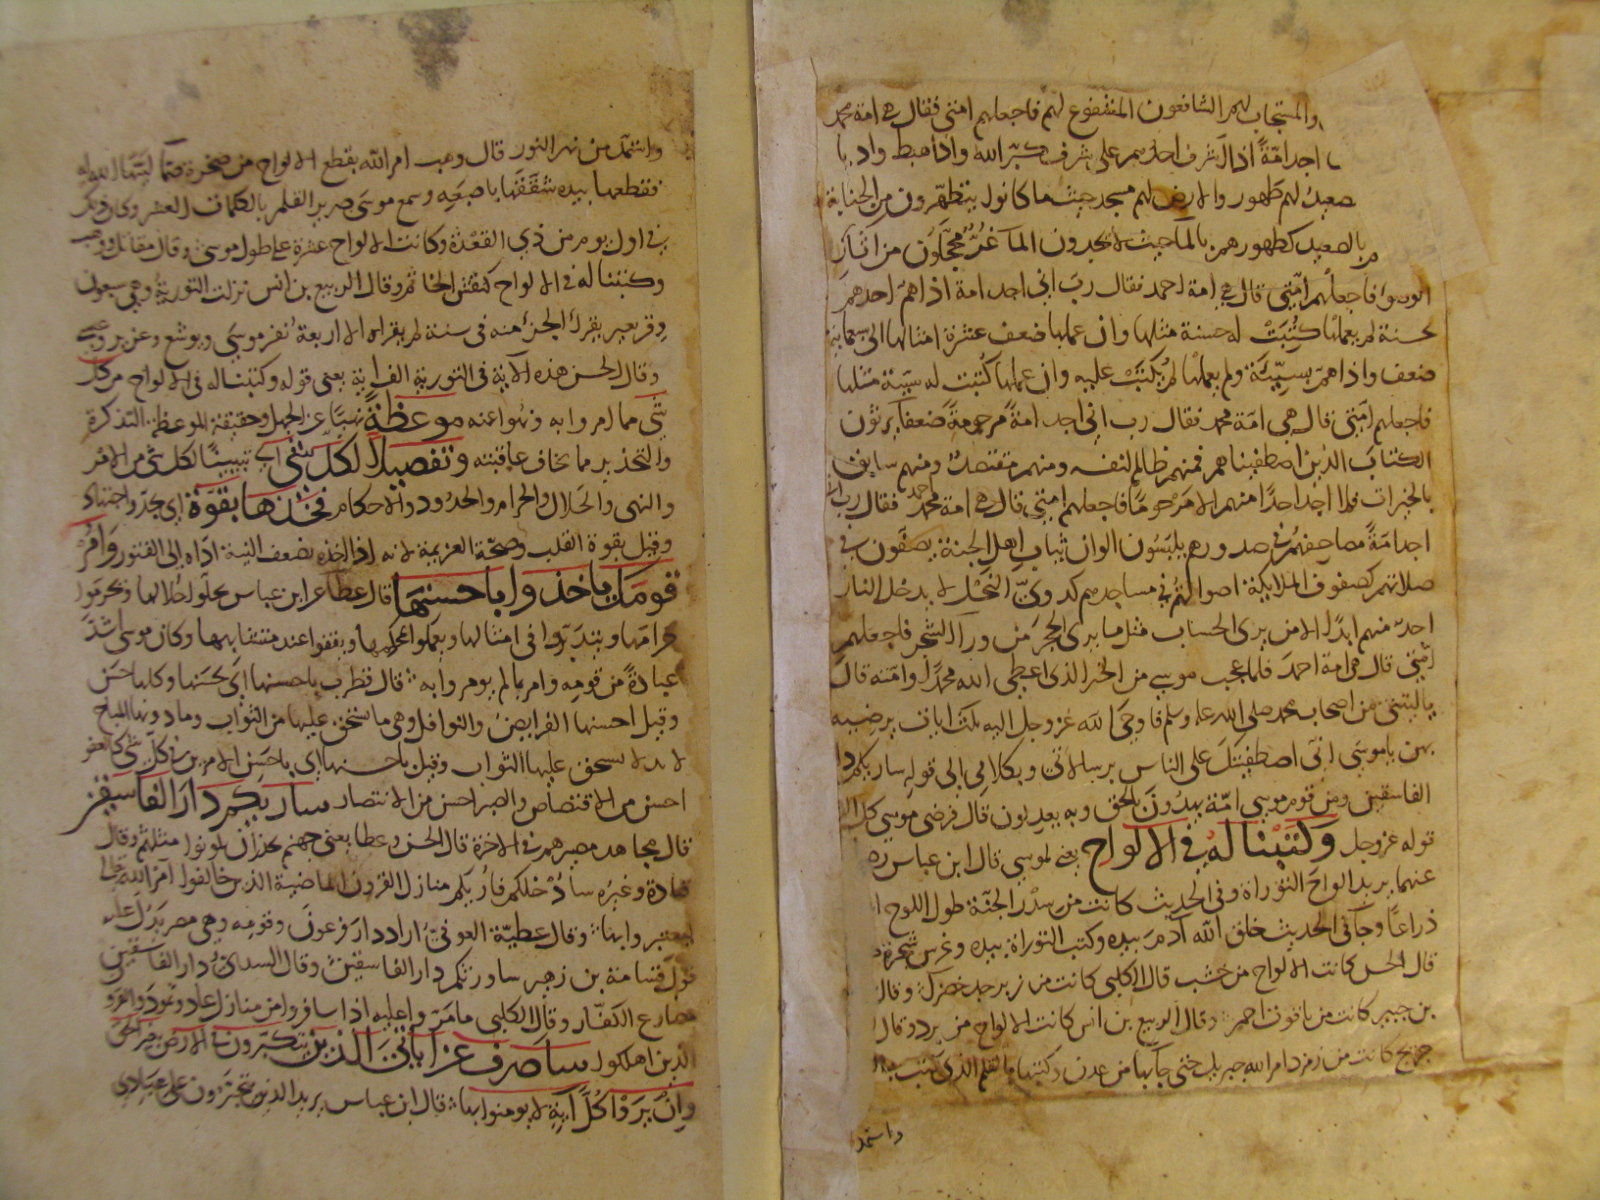 والمستجاب لهم الشافعون المشفوع لهم فاجعلهم امتي فقال هي امة محمد
اجد امّةً اذا اشرف احدهم على شرف كبّر الله واذا هبط واديا
صعيد لهم طهور والارض لهم مسجد حيث ما كانوا يتطهّرون من الجنابة
بالصعيد كطهورهم بالماء حيث لا يجدون الماء غُرٌّ محجّلون من اثار
الوضوء فاجعلهم امّتي قال هي امة احمد فقال ربّ اني اجد امة اذا همّ احدهم
بحسنة لم يعملها كُتِبَتْ له حسنة مثلها وان عملها ضعف عشرة امثالها الى سبعماية
ضعف واذا همّ بسيّئة ولم يعملها لم يُكتَبْ عليه وان عملها كُتبت له سيّئة مثلها
فاجعلهم امّتي قال هي امّة محمد فقال رب اني اجد امةً مرحومةً ضعفآء يرثون
الكتاب الذين اصطفيناهم فمنهم ظالم لنفسه ومنهم مقتصد ومنهم سابق
بالخيرات فلا اجد احدًا منهم الا مرحومًا فاجعلهم امتي قال هي امة محمد فقال رب اني
اجد امّةً مصاحفهم في صدورهم يلبسون الوان ثياب اهل الجنة يصفّون في
صلاتهم كصفوف الملايكة اصواتهم في مساجدهم كدويّ النحل لا يدخل النار
احد منهم ابدًا الا من يرى الحساب مثل ما يرى الحجر من ورآء الشجر فاجعلهم
امّتي قال هي امة احمد فلما عجب موسى من الخير الذي اعطى الله محمدًا وامّته قال
يا ليتني من اصحاب محمد صلى الله عليه وسلم فاوحى الله عز وجل اليه ثلث ايات يرضيه
بهن يا موسى اني اصطفيتك على الناس برسالاتي وبكلامي الى قوله ساريكم دار
الفاسقين ومن قوم موسى امّة يهدُون بالحق وبه يعدلون قال فرضي موسى كل الر
قوله عز وجل وكتبنا له في الالواح يعني لموسى قال ابن عباس رضي
عنهما يريد الواح التوراة وفي الحديث كانت من سدر الجنّة طول اللوح
ذراعًا وجآ في الحديث خلق الله آدم بيده وكتب التوراة بيده وغرس شجرة
قال الحسن كانت الالواح من خشب قال الكلبي كانت من زبرجد خضرآء وقال
بن جبير كانت من ياقوت احمر وقال الربيع بن انس كانت الالواح من برد وقال
جريج كانت من زمرد امر الله جبريل حتى جآء بها من عدن وكتبها بالقلم الذي كتب به
واستمد
واستمدّ من نهر النور قال وهب امر الله بقطع الالواح من صخرة صمّآ ليّنها الله له
فقطعها بيده ثم شققها باصبعه وسمع موسى صرير القلم بالكلمات العشر وكان ذلك
في اول يوم من ذي القعدة وكانت الالواح عشرة على طول موسى وقال مقاتل ووهب
وكتبنا له في الالواح كنقش الخاتم وقال الربيع بن انس نزلت التورية وهي سبعون
وقر بعير يقرأ الجزء منه في سنة لم يقرأه الا اربعة نفر موسى ويوشع وعزير وعيسى
وقال الحسن هذه الآية في التورية الف اية يعني قوله وكتبنا له في الالواح من كل
شي مما امروا به ونهوا عنه موعظةً نهيًا عن الجهل وحقيقة الموعظة التذكرة
والتحذير مما يخاف عاقبته وتفصيلًا لكل شي اي تبيينًا لكل شي من الامر
والنهي والحلال والحرام والحدود والاحكام فخذها بقوة اي بجدّ واجتهاد
وقيل بقوة القلب وصحّة العزيمة لانه اذا اخذه بضعف النية ادّاه الى الفتور وأمر
قومك ياخذوا باحسنها قال عطا عن ابن عباس يحلّوا حلالها ويحرموا
حرامها ويتدبّروا في امثالها ويعملوا بمحكمها ويقفوا عند متشابهها وكان موسى اشدّ
عبادةً من قومه وامر بما لم يومروا به قال قطرب باحسنها اي بحسنها وكلها حسن
وقيل احسنها الفرايض والنوافل وهي ما يستحق عليها من الثواب وما دونها المباح
لانه لا يستحق عليها الثواب وقيل باحسنها اي باحسن الامرين في كل شي كالعفو
احسن من الاقتصاص والصبر احسن من الانتصار ساريكم دار الفاسقين
قال مجاهد مصيرهم في الاخرة قال الحسن وعطا يعني جهنم يحذر ان يكونوا مثلهم وقال
قتادة وغيره سادخلكم فاريكم منازل القرون الماضية الذين خالفوا امر الله
ليعتبروا بها وقال عطيّة العوفي اراد دار فرعون وقومه وهي مصر يدل عليه
قول قسامة بن زهير ساورثكم دار الفاسقين وقال السدي دار الفاسقين
مصارع الكفّار وقال الكلبي ما مرّوا عليه اذا سافروا من منازل عاد وثمود والقرون
الذين اهلكوا ساصرف عن اياتي الذين يتكبّرون في الارض بغير الحق
وان يروا كُلّ آيةٍ لا يومنوا بها قال ابن عباس يريد الذين يتجبّرون على عبادي